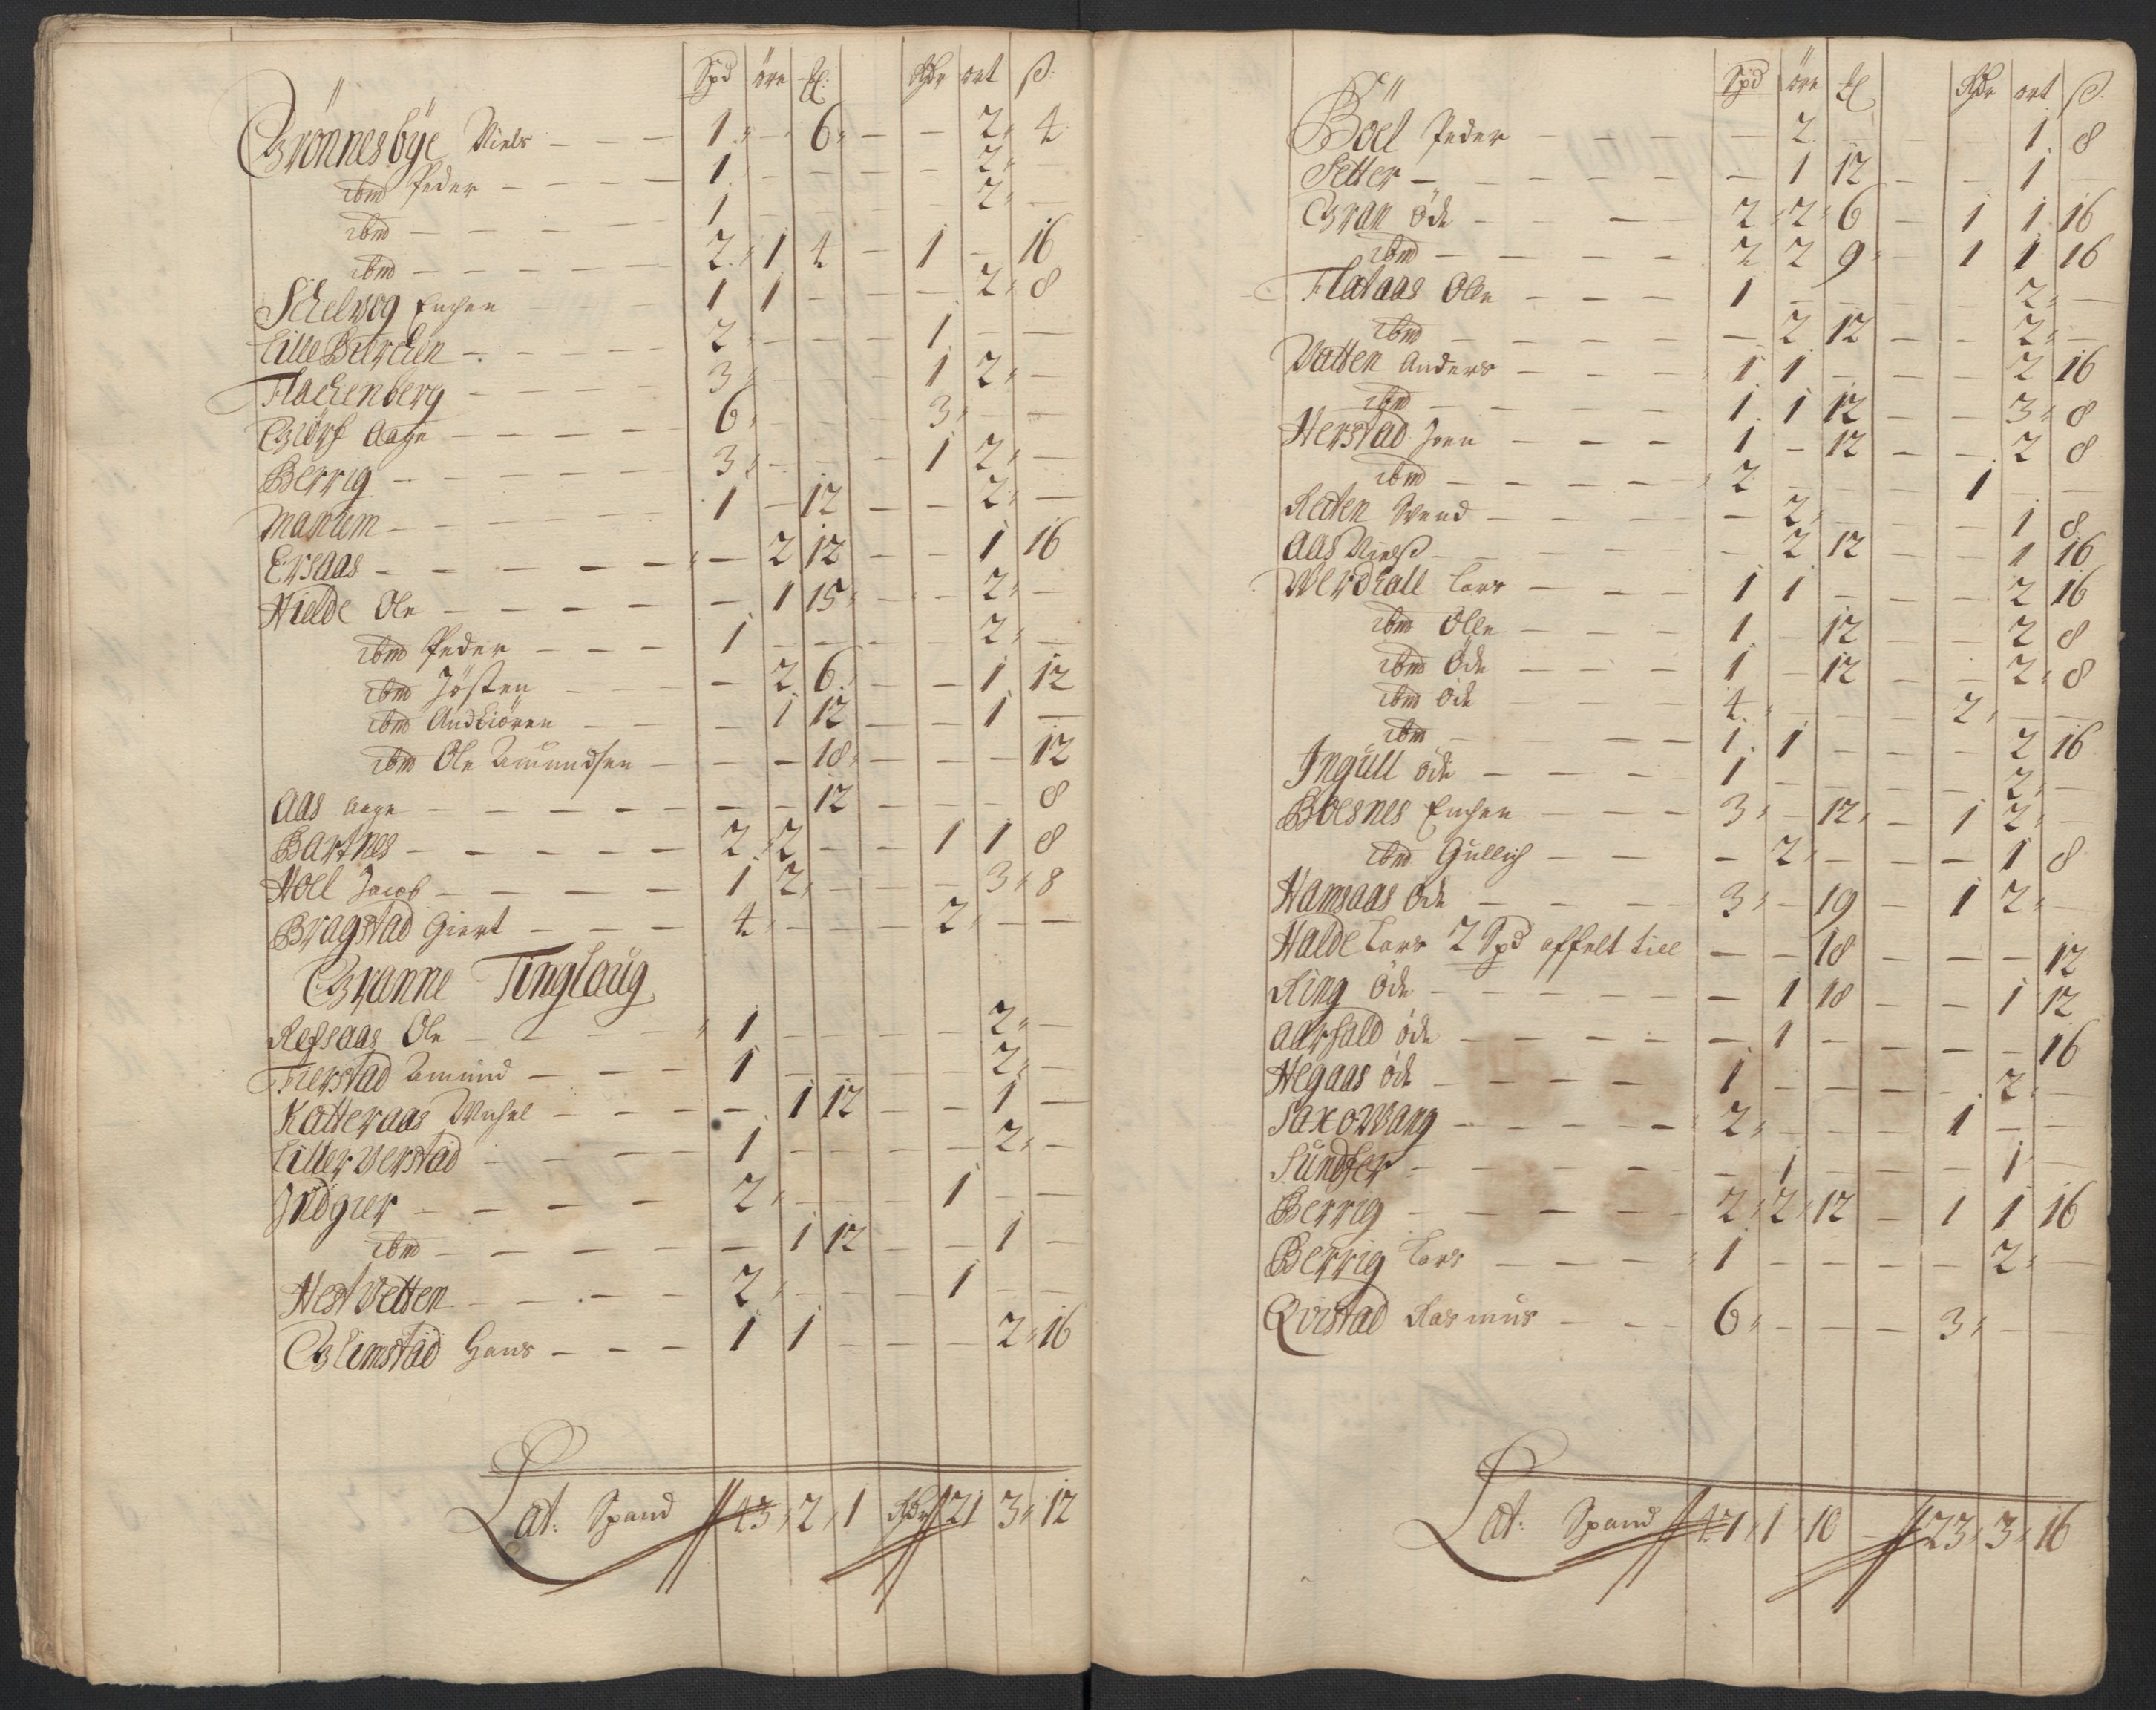 Spd öre ℔: Rdr ort ß:
Grönnesbÿe Niels - - - 1 - 6 - - 2 4
ibm Peder - - - - 1 - - - - 2 -
ibm - - - - 1 - - - - 2 -
ibm - - - - - 2 1 4 - 1 - 16
Schelvog Enchen 1 1 - - - 2 8
Lille Burchen - - - - 2 - - - 1 - -
Flachenberg - - - - 3 1 2 -
Giörf Aage - - - - - 6 - - - 3 - -
Berrig - - - - - 3 - - - 1 2 -
Manum - - - - - 1 - 12 - - 2 -
Ersaas - - - - - - 2 12 - - 1 16
Hielde Ole - - - - - - 1 15 - - 2 -
ibm Peder - - - 1 - - - - 2 -
ibm Jösten - - - - 2 6 - - 1 12
ibm Andkiören - - - 1 12 - - 1 -
ibm Ole Amundsen - - - 18 - - - 12
Aas Aage - - - - - - - 12 - - - 8
Bartnes - - - - - 2 2 - - 1 1 8
Hoel Jacob - - - - - 1 2 - - - 3 8
Bragstad Giert - - - 4 - - - 2 - -
Granne Tinglaug
Refsaas Ole - - - - 1 - - - - 2 -
Fierstad Amund - - - - 1 - - - - 2 -
Katteraas Michel - - - - - 1 12 - - 1 -
Lillerverstad - - - - 1 - - - - 2 -
Jndgier - - - - - 2 - - - 1 - -
ibm - - - - - - 1 12 - - 1 -
Hestvetten - - - - 2 - - - 1 - -
Glimstad Hans - - - 1 1 - - - 2 16
Lat: Spand 43 2 1 Rdr 21 3 12
Spd öre ℔ Rdr ort ß:
Böel Peder - - - - - 2 - 1 8
Setter - - - - - - 1 12 - - 1
Gran öde - - - - 2 2 6 - 1 1 16
ibm - - - - - 2 2 9 - 1 1 16
Flataas Ole - - - 1 - - - - 2 -
ibm - - - - - 2 12 - - 2 -
Vatten Anders - - - 1 1 - - - 2 16
ibm - - - - 1 1 12 - - 3 8
Herstad Joen - - - 1 - 12 - - 2 8
ibm - - - - - 2 - - - 1 - -
Reiten Svend - - - - - 2 - - - 1 8
Aas Nielß - - - - - - 2 12 - - 1 16
Werdkall Lars - - - 1 1 - - - 2 16
ibm Ole - - - 1 - 12 - 2 8
ibm öde - - - 1 - 12 - - 2 8
ibm öde - - - 4 - - - 2 - -
ibm - - - - 1 1 - - - 2 16
Jngull öde - - - - 1 - - - - 2 -
Boesnes Enchen - - - 3 - 12 - 1 2 -
ibm Gullich - - - - 2 - - - 1 8
Hamsaas öde - - - - 3 - 19 - 1 2 -
Halde Lars 2 Spd affelt till - - 18 - - - 12
Ring öde - - - - - - 1 18 - - 1 12
Aarfald öde - - - - - - 1 - - - - 16
Hegaas öde - - - - - 1 - - - - 2 -
Saxowang - - - - - 2 - - - 1 - -
Sundser - - - - - - 1 - - - 1 -
Berrig - - - - - 2 2 12 - 1 1 16
Berrig Lars - - - - 1 - - - - 2 -
Qvistad Rasmus - - - 6 - - - 3 - -
Lat: Spand 47 1 10 - 23 3 16